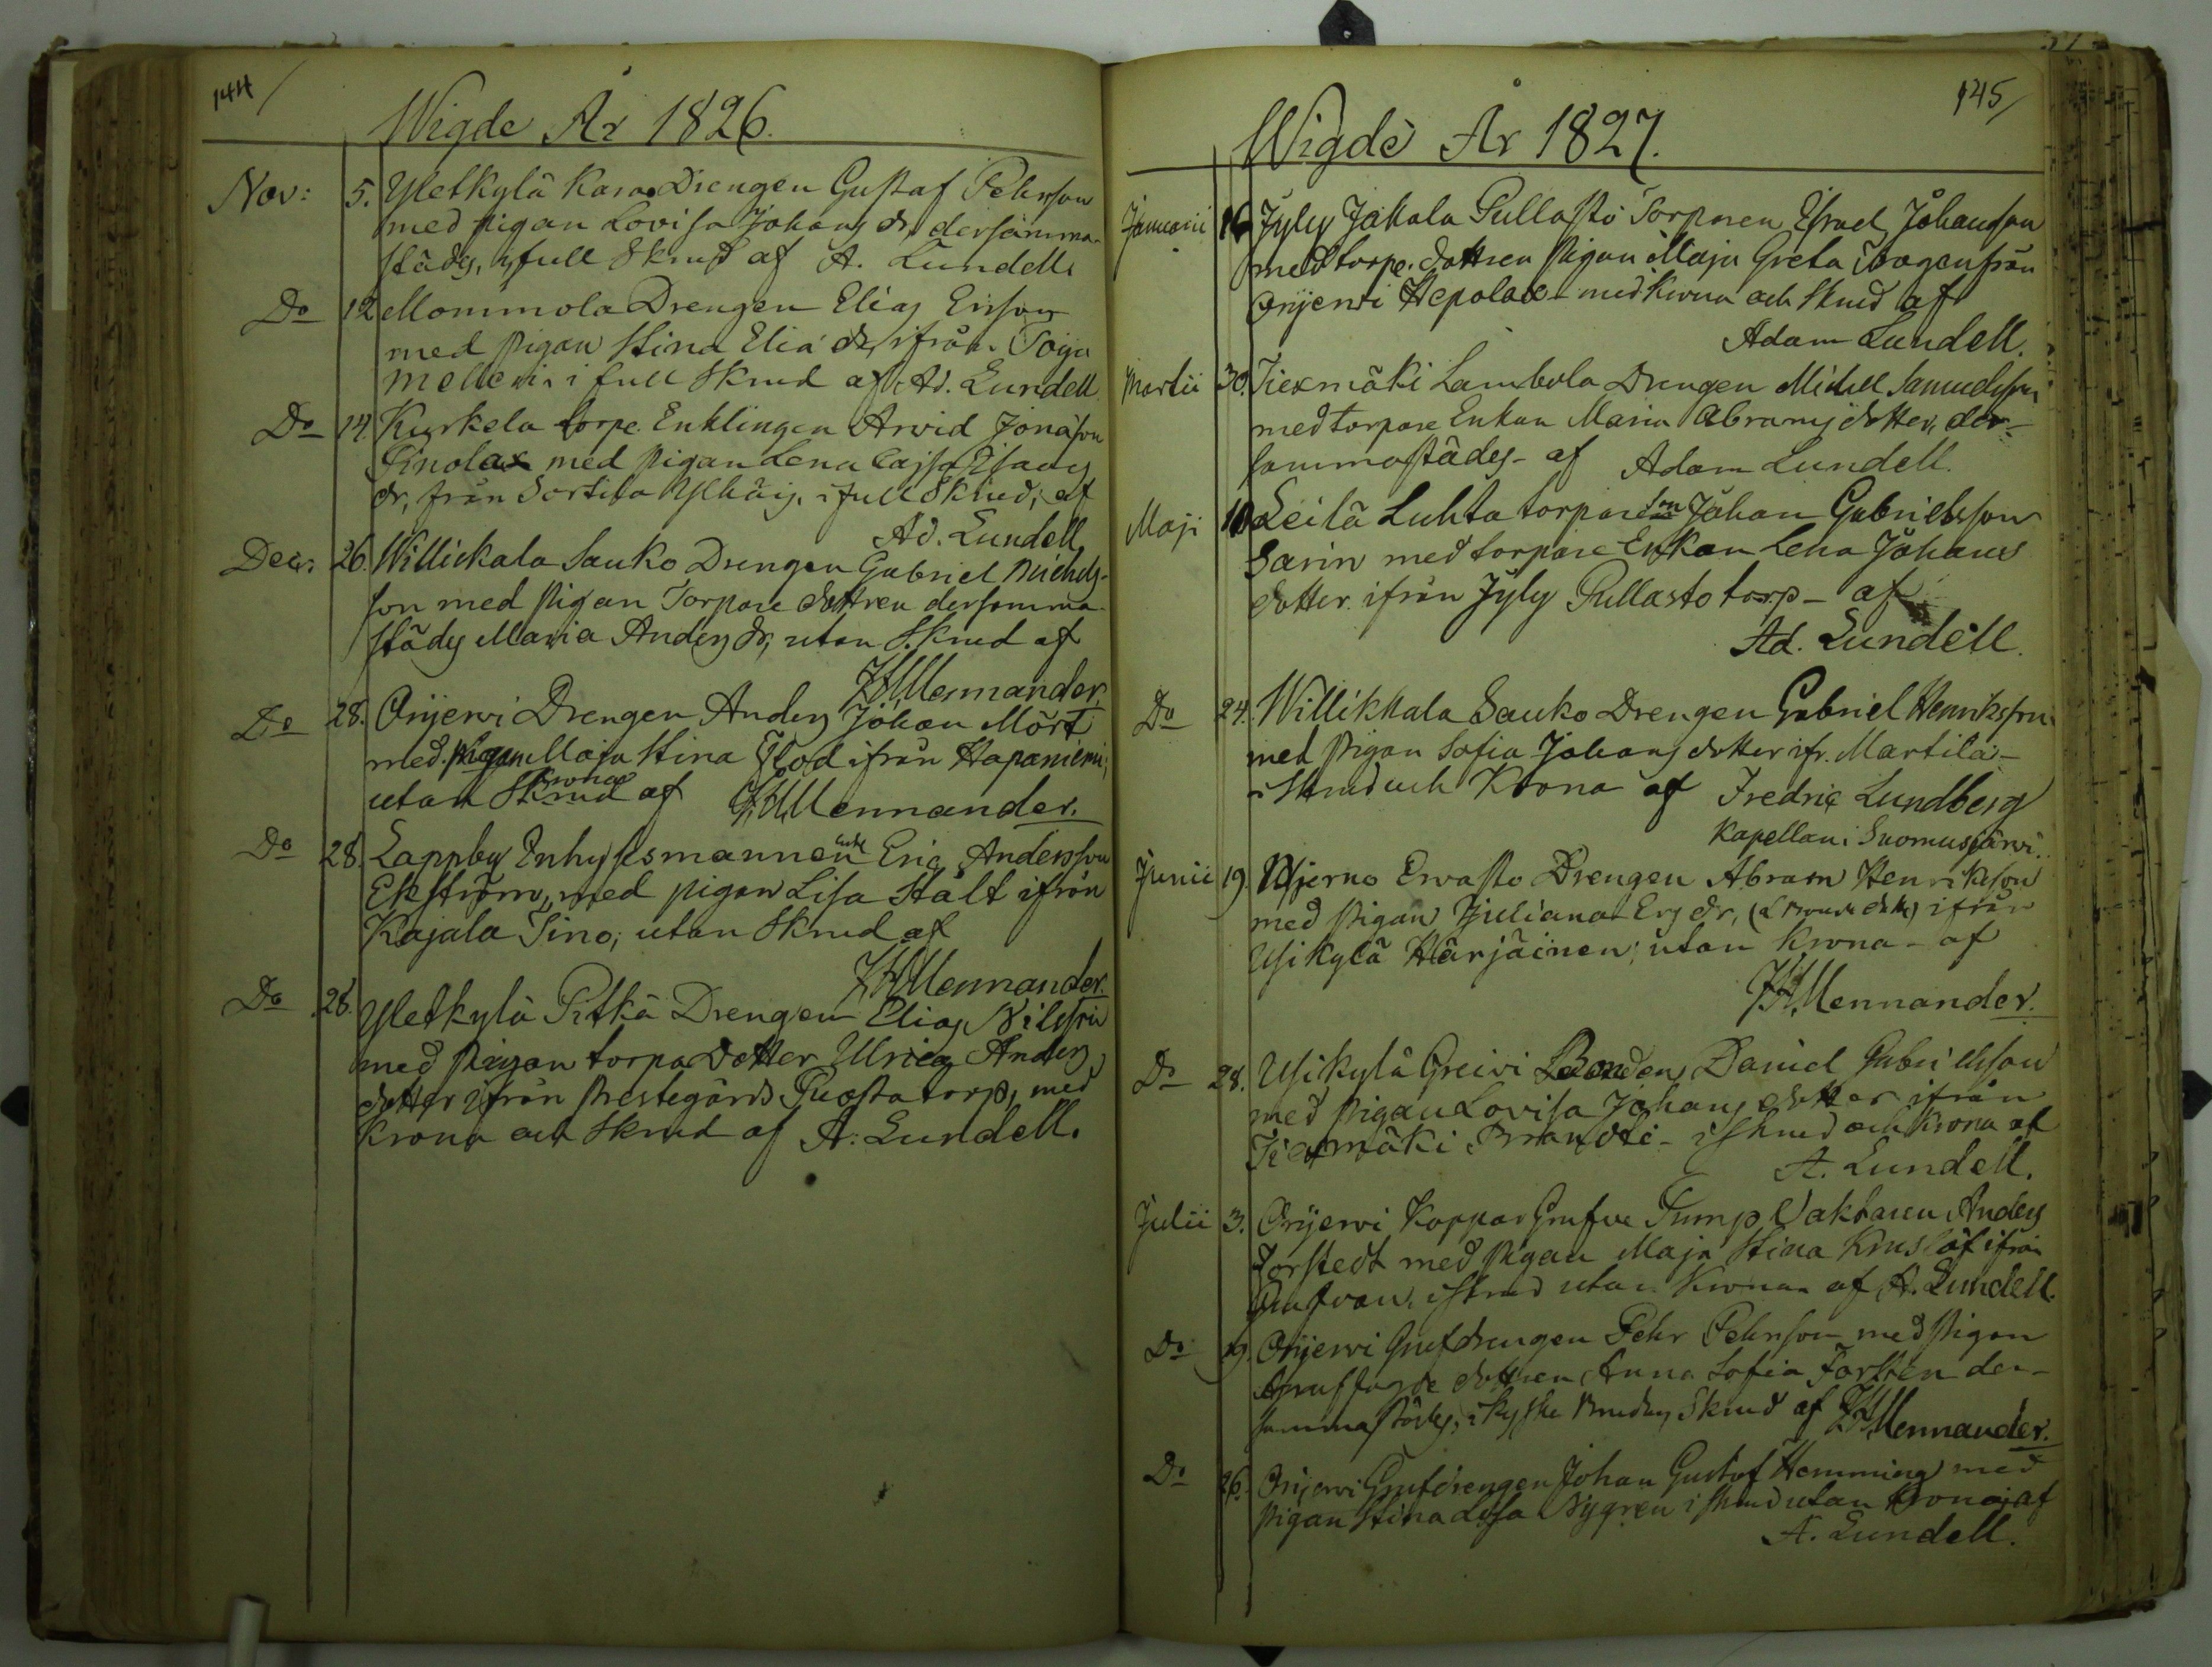 144/
Wigde År 1826.
Nov: 5. Yletkylä Karas Drengen Gustaf Pehrson
med pigan Lovisa Johans dr, dersamma-
städs, i full Skrud af A. Lundell
Do 12 Mommola Drengen Elias Ersson
med pigan Stina Eliæ dr, ifrån Toija
Mellari i full Skrud af Ad. Lundell
Do 14. Kurkela torpe. Enklingen Arvid Jonasson
Knolax med pigan Lena Cajsa Isacs
dr, från i full Skrud; af
Ad. Lundell
Decr. 26. Willickala Sauko Drengen Gabriel Michels-
son med pigan Torpare dottren dersamma-
städs Maria Anders dr, utan Skrud af
Mennander.
Do 28. Orijervi Drengen Anders Johan Mört
med pigan Maja Stina Flod ifrån Hapaniemi;
krona
utan Skrud af Mennander.
Do 28. Lappby Enhysesmannen Eric Andersson
Ekström, med pigan Lisa Stålt ifrån
Kajala Tino; utan Skrud af
Mennander.
Do 28. Yletkylä Pitkä Drengen Elias Nilsson
med pigan torpa Dotter Ulrica Anders
dotter ifrån Prestegårds torp, med
Krona och Skrud af A. Lundell.
145/
Wigde År 1827.
Januarii 16 Jyly Jakala Pullasto Torparen Israel Johansson
med torpe. dottren pigan Maja Greta från
Orijervi Hepolax - med krona och Skrud af
Adam Lundell.
Martii 30. Tiexmäki Lambola Drengen Michel Samuelsson
med torpare Enkan Maria Abrams dotter, der-
sammastädes - af Adam Lundell.
Maji 10 Leilä Luhta torpare son Johan Gabrielsson
Sarin med torpare Enkan Lena Johans
dotter ifrån Jyly Pullasto torp - af
Ad. Lundell.
Do 24. Willikkala Sauko Drengen Gabriel Henriksson
med pigan Sofia Johans dotter ifr. Martila -
i Skrud och Krona af Fredric Lundberg
Kapellan i Suomusjärvi.
Junii 19. Kjerno Ervasto Drengen Abram Henriksson
med pigan Juliana Ers dr, ifrån
Ysikylä Härjäinen; utan krona - af
Mennander.
Do 28. Ysikylä Greivi Bonden Daniel Gabrielsson
med pigan Lovisa Johans dotter ifrån
Tiexmäki Brandti - i Skrud och Krona af
A. Lundell.
Julii 3. Orijervi Koppar Grufve Pump Vaktaren Anders
Forstedt med pigan Maja Stina Kruslöf ifrån
Grufvan, i Skrud utan Krona af A. Lundell.
Do 19. Orijervi Grufdrengen Pehr Pehrson med pigan
Gruffogde dottren Anna Sofia Forstén der-
sammastädes; i kyske Brudens Skrud af Mennander.
Do 26. Orijervi Grufdrengen Johan Gustaf Hemming med
pigan Stina Lisa Nygren i Skrud utan Krona; af
A. Lundell.